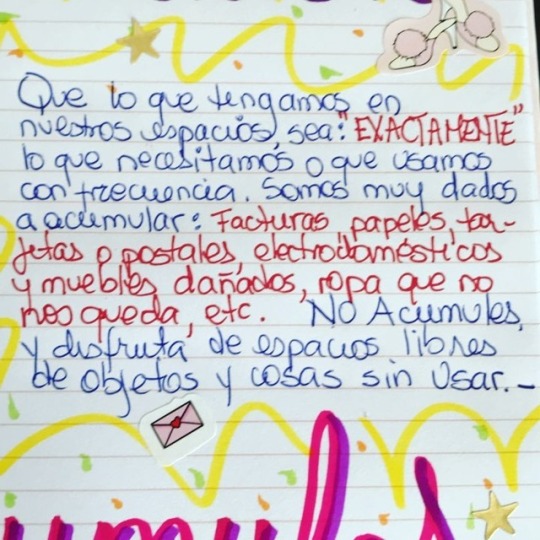 Que lo que tengamos en
nuestros espacios, sea: "EXACTAMENTE"
lo que necesitamos o que usamos
con frecuencia. Somos muy dados
a acumular: Facturas, papeles, tar-
jetas o postales, electrodomésticos
y muebles dañados, ropa que no
nos queda, etc. NO Acumules,
y disfruta de espacios libres
de objetos y cosas sin Usar.-